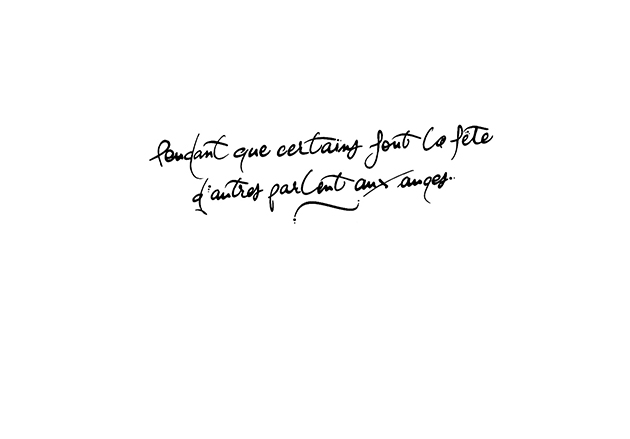 Pendant que certains font la fête
d'autres parlent aux anges..